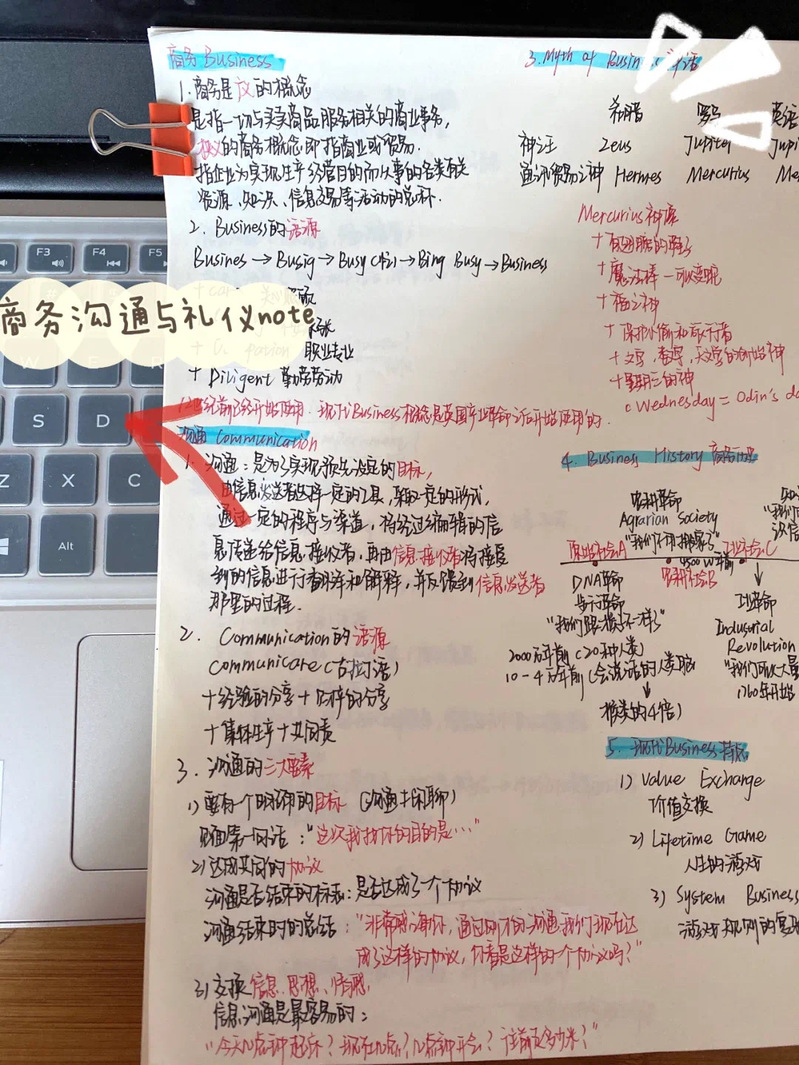 商务 Business
1. 商务是广义的概念
是指一切与买卖商品服务相关的商业事务,
狭义的商务概念即指商业或贸易.
指企业为实现生产经营目的而从事的各类有关
资源、知识、信息交易等活动的总称.
2. Business的语源
Busines → Busig → Busy → Bing Busy → Business
商务沟通与礼仪note
职业专业
+ Diligent 勤劳劳动
现代Business概念是英国产业革命之后开始使用的.
沟通 Communication
1. 沟通: 是为了实现预先设定的目标,
由信息发送者选择一定的工具, 采取一定的形式,
通过一定的程序与渠道, 将经过编辑的信
息传递给信息接收者, 再由信息接收者将接受
到的信息进行翻译和解释, 并反馈到信息发送者
那里的过程.
2. Communication的语源
Communicare (古拉丁语)
+ 经验的分享 +
+ 集体生产 + 共同责
3. 沟通的三大要素
1) 要有一个明确的目标 (沟通≠闲聊)
见面第一句话: "这次我找你的目的是…"
2) 达成共同的协议
沟通是否结束的标志: 是否达成了一个协议
沟通结束时的总结: "非常感谢你, 通过刚才的沟通我们现在达
成了这样的协议, 你看是这样的一个协议吗?"
3) 交换信息、思想、情感,
信息沟通是最容易的:
"今天几点钟起床? 现在几点? 几点钟开会? 往前走多少米?"
3. Myth of Busin 神话
希腊 罗马 英语
神之王 Zeus Jupiter Jupi
通讯贸易之神 Hermes Mercurius Me
Mercurius神像
+ 有翅膀的鞋子
+ 魔法棒 - 可以变蛇
+ 福之神
+ 保护小偷和旅行者
+ 文学, 哲学, 天文学的创始神
+ 星期三的神
(Wednesday = Odin's d
4. Business History 商务历史
Agrarian Society
原始社会A
农耕社会B
工业社会C
DNA革命
步行革命
"我们跟猿猴不一样了"
2000万年前 (20种人类)
10-4万年前 (会说话的人类脑
↓
猿类的4倍)
工业革命
Industrial
Revolution
"我们可以大量
1760年开始
5. 现代Business特征
1) Value Exchange
价值交换
2) Lifetime Game
人生的游戏
3) System Business
游戏规则的复
F2
F3
F4
S
D
Z
X
C
Alt